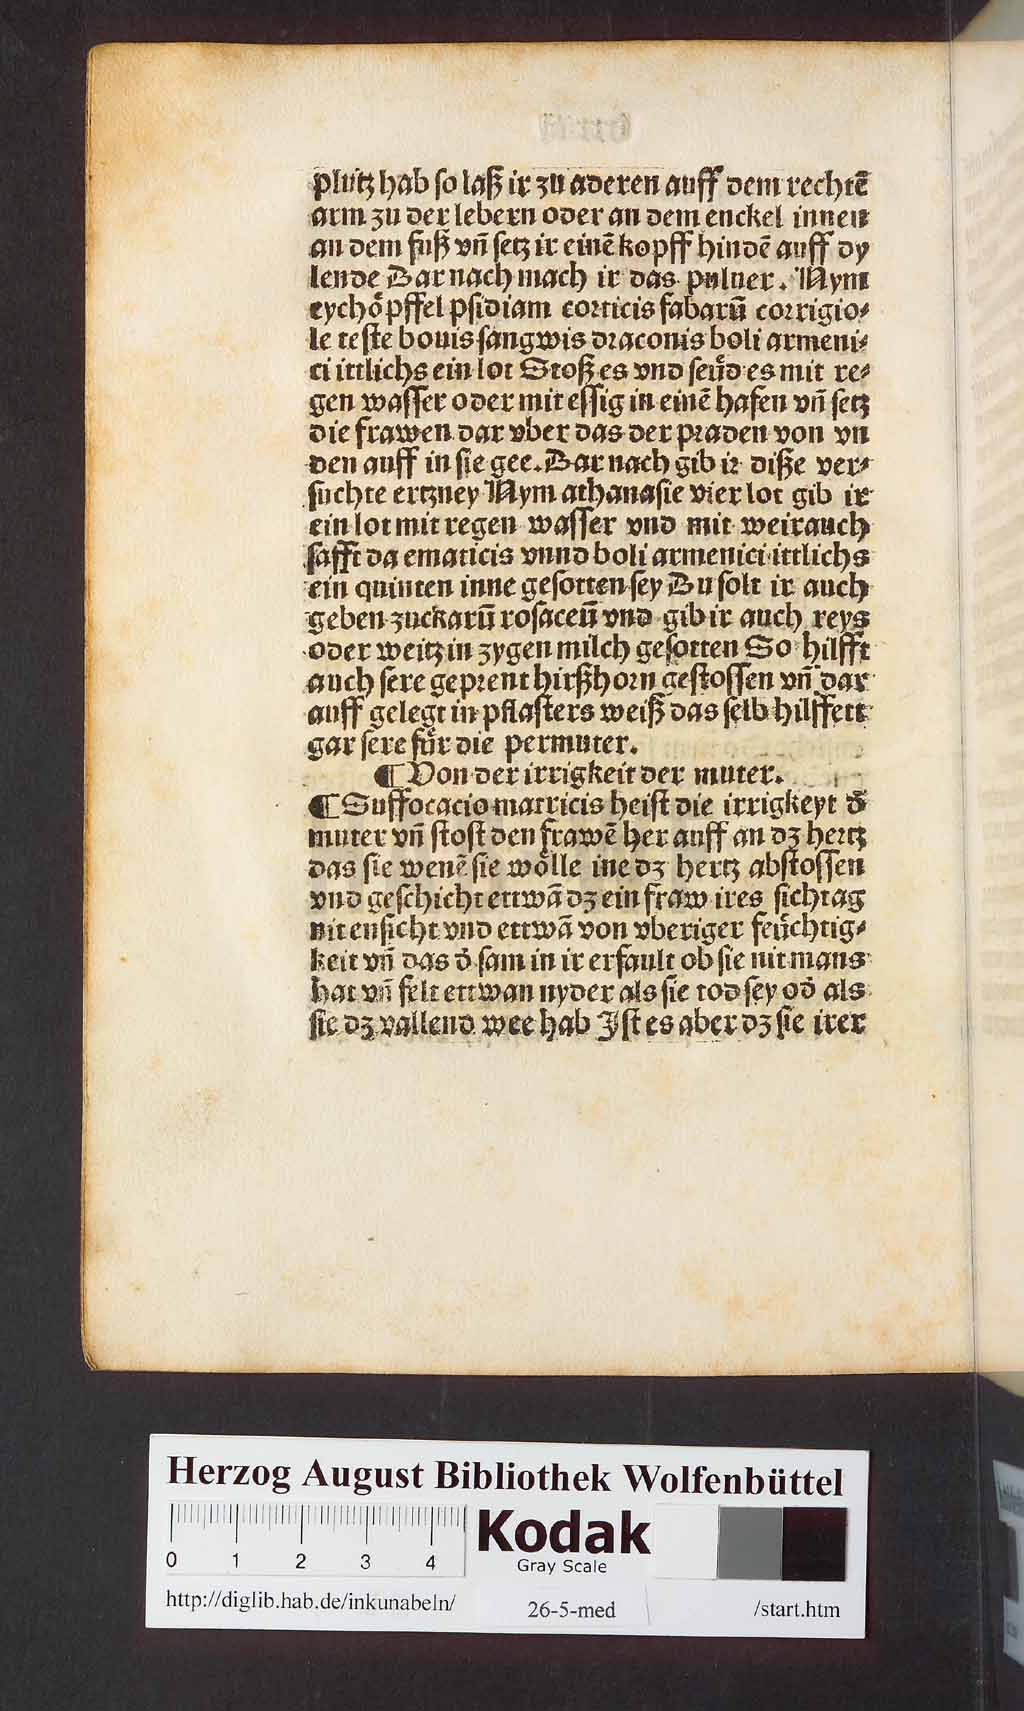 plutz hab so laß ir zu aderen auff dem rechtē
arm zu der lebern oder an dem enckel innen
an dem fuß vñ setz ir einē kopff hindē auff dy
lende Dar nach mach ir das puluer. Nym
eychöpffel psidiam corticis fabarū corrigio⸗
le teste bouis sangwis draconis boli armeni⸗
ci ittlichs ein lot Stoß es vnd seud es mit re⸗
gen wasser oder mit essig in einē hafen vñ setz
die frawen dar vber das der praden von vn
den auff in sie gee. Dar nach gib ir diße ver⸗
suchte ertzney Nym athanasie vier lot gib ir
ein lot mit regen wasser vnd mit weirauch
safft da ematicis vnnd boli armenici ittlichs
ein quinten inne gesotten sey Du solt ir auch
geben zuckarū rosaceū vnd gib ir auch reys
oder weitz in zygen milch gesotten So hilfft
auch sere geprent hirßhorn gestossen vñ dar
auff gelegt in pflasters weiß das selb hilffett
gar sere für die permuter.
¶ Von der irrigkeit der muter.
¶ Suffocacio matricis heist die irrigkeyt d̄
muter vñ stost den frawē her auff an dz hertz
das sie wenē sie wölle ine dz hertz abstossen
vnd geschicht ettwā dz ein fraw ires sichtag
nit ensicht vnd ettwā von vberiger feuchtig⸗
keit vñ das d̄ sam in ir erfault ob sie nit mans
hat vñ felt ettwan nyder als sie tod sey od̄ als
sie dz vallend wee hab Ist es aber dz sie irer
Herzog August Bibliothek Wolfenbüttel
0 1 2 3 4
Kodak
Gray Scale
http://diglib.hab.de/inkunabeln/ 26-5-med /start.htm